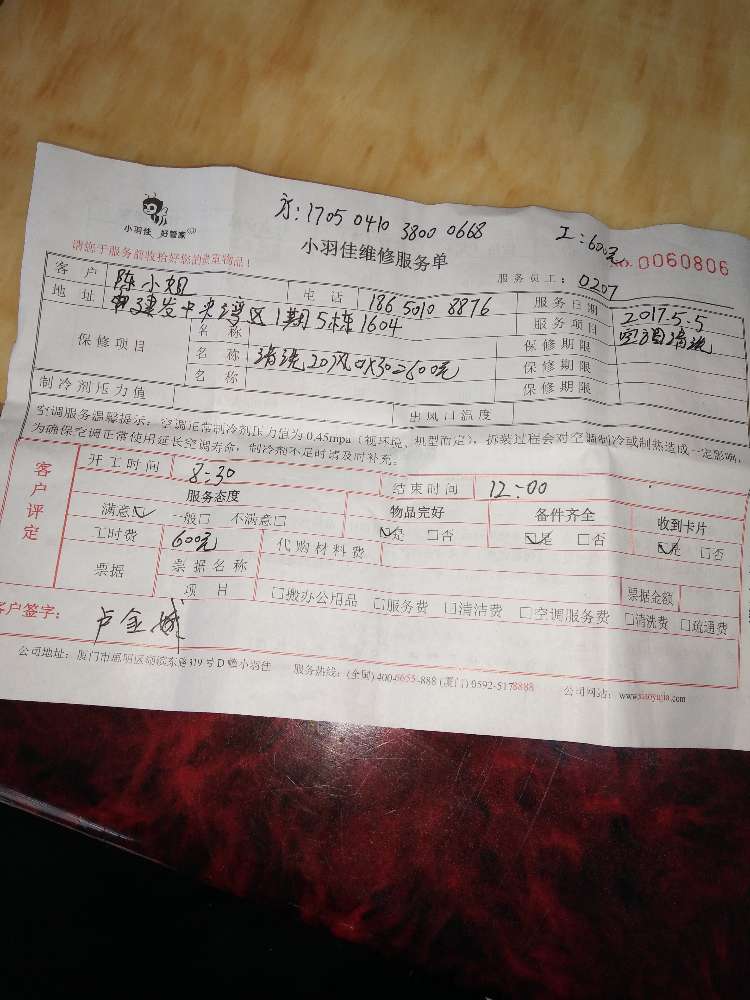 方:1705 0410 3800 0668 工:600元
小羽佳 好管家
小羽佳维修服务单
No. 0060806
请您于服务前收拾好您的贵重物品!
服务员工: 0207
客户 陈小姐 电话 186 5010 8876 服务日期 2017.5.5
地址 建发中央湾区1期5栋1604 服务项目 空调清洗
保修项目 名称 保修期限
名称 清洗20风口X30=600元 保修期限
名称 保修期限
制冷剂压力值 出风口温度
空调服务温馨提示:空调正常制冷剂压力值为0.45mpa(视环境、机型而定),拆装过程会对空调制冷或制热造成一定影响,
为确保空调正常使用延长空调寿命,制冷剂不足时请及时补充。
客户评定
开工时间 8:30 结束时间 12:00
服务态度 物品完好 备件齐全 收到卡片
满意☑ 一般□ 不满意□ ☑是 □否 ☑是 □否 ☑是 □否
工时费 600元 代购材料费
票据 票据名称 票据金额
项目 □搬办公用品 □服务费 □清洁费 □空调服务费 □清洗费 □疏通费
客户签字: 卢金城
公司地址:厦门市思明区湖滨东路319号D幢小羽佳 服务热线:(全国)400-6655-888 (厦门)0592-5178888 公司网站:www.xiaoyujia.com